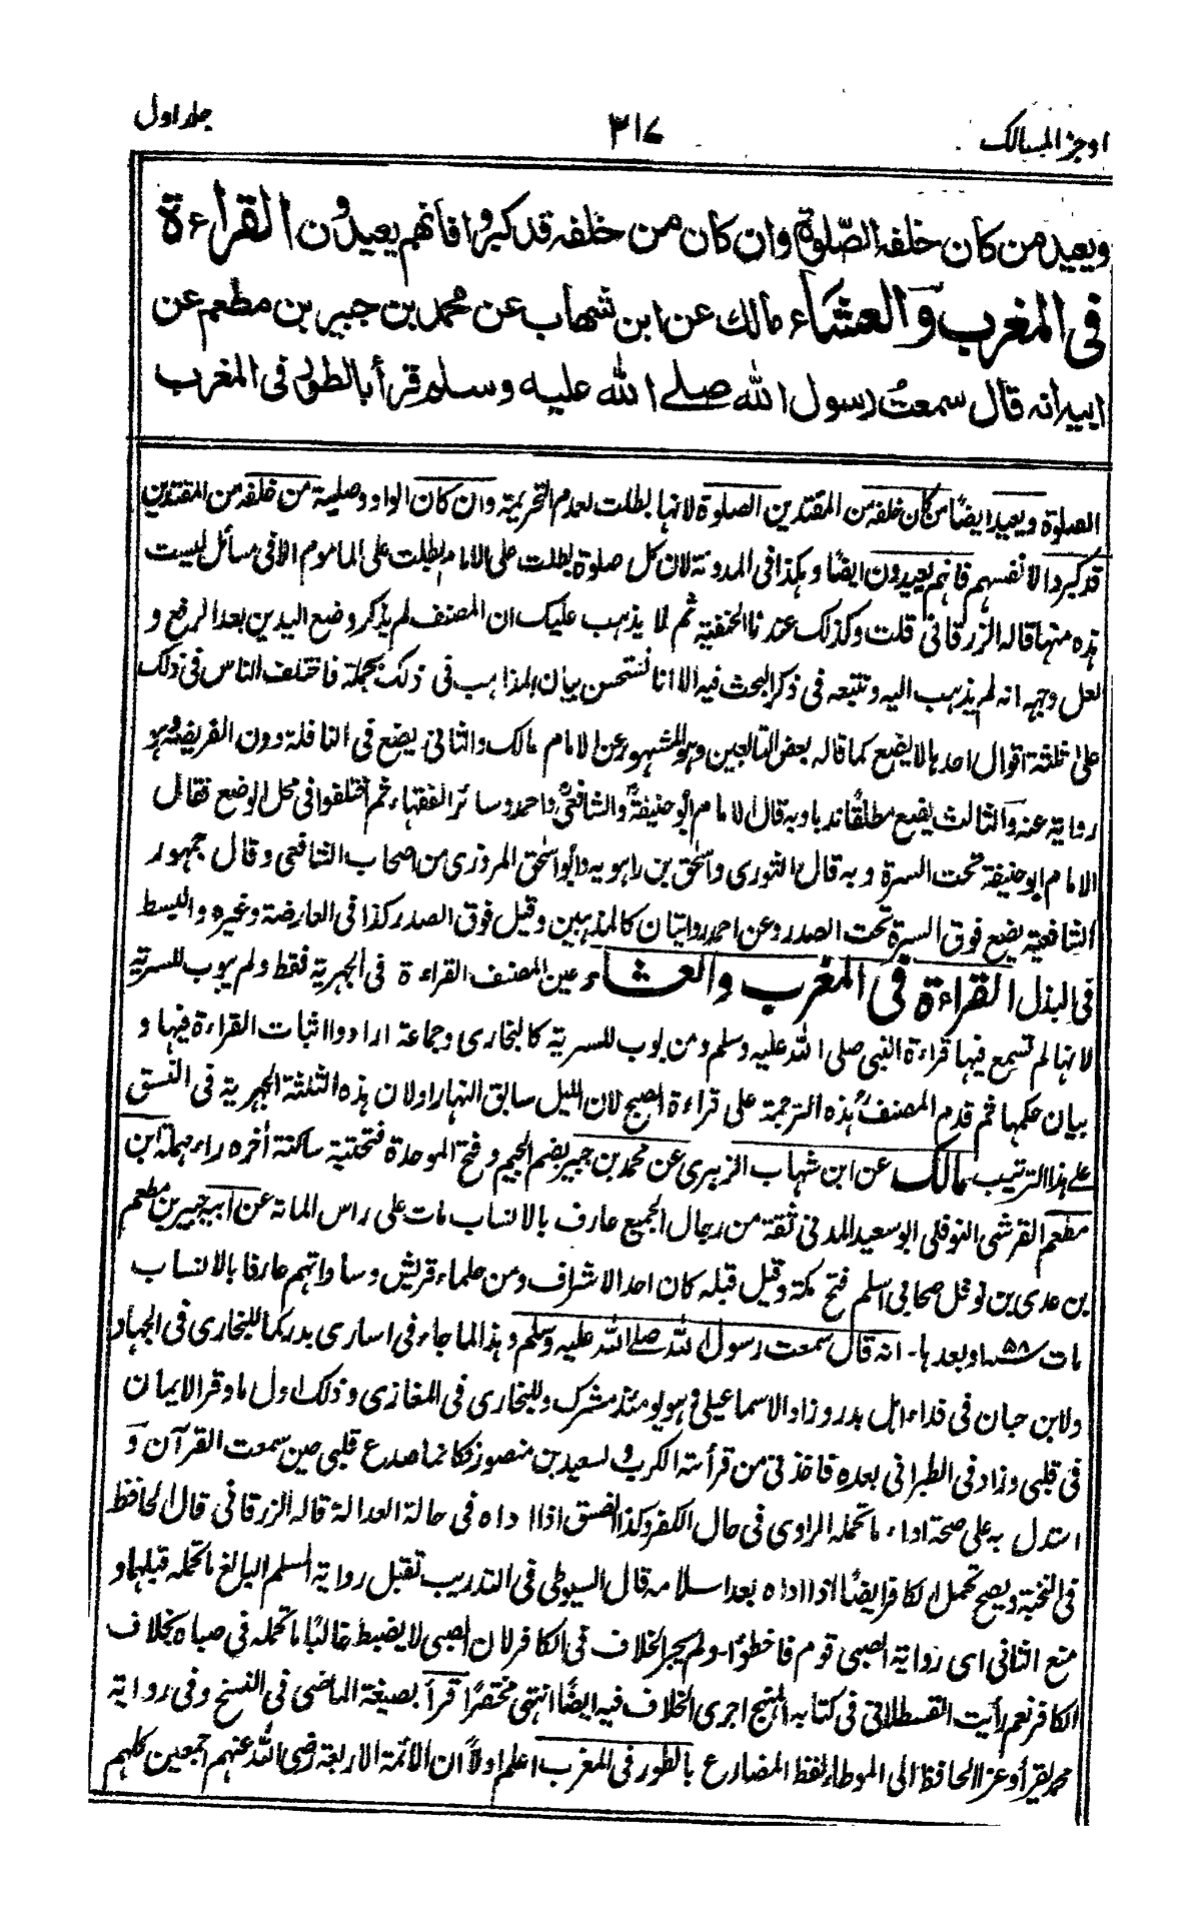 اوجز المسالك
٣١٤
جلد اول
ويعيد من كان خلفه الصّلوة وان كان من خلفه قد كبروا فأنهم يعيدون القراءة
فى المغرب والعشاء مالك عن ابن شهاب عن محمد بن جبير بن مطعم عن
ابيه انه قال سمعت رسول الله صلے الله عليه وسلم قرأ بالطور فى المغرب
الصلوة ويعيد ايضًا من كان خلفه من المقتدين الصلوة لانها بطلت لعدم التحريمة وان كان الواو وصلية من خلفه من المقتدين
قد كبروا لانفسهم فانهم يعيدون ايضًا وهكذا فى المدونة لان كل صلوة بطلت على الامام بطلت على الماموم الا فى مسائل ليست
هذه منها قاله الزرقانى قلت وكذلك عندنا الحنفية ثم لا يذهب عليك ان المصنف لم يذكر وضع اليدين بعد الرفع و
لعل وجهه انه لم يذهب اليه ونتبعه فى ذكر البحث فيه الا انا نستحسن بيان المذاهب فى ذلك بجملة فاختلف الناس فى ذلك
على ثلثة اقوال احدها لا يضع كما قاله بعض التابعين وهو المشهور عن الامام مالك والثانى يضع فى النافلة دون الفريضة وهو
رواية عنه والثالث يضع مطلقًا ندبا وبه قال الامام أبو حنيفة والشافعى واحمد وسائر الفقهاء ثم اختلفوا فى محل الوضع فقال
الامام ابو حنيفة تحت السرة وبه قال الثورى واسحٰق بن راهويه وأبو اسحٰق المروزى من اصحاب الشافعى وقال جمهور
الشافعية يضع فوق السرة تحت الصدر وعن احمد روايتان كالمذهبين وقيل فوق الصدر كذا فى العارضة وغيره والبسط
فى البذل القراءة فى المغرب والعشاء عين المصنف القراءة فى الجهرية فقط ولم يبوب للسرية
لانها لم تسمع فيها قراءة النبى صلى الله عليه وسلم ومن بوب للسرية كالبخارى وجماعة ارادوا اثبات القراءة فيها و
بيان حكمها ثم قدم المصنف هذه الترجمة على قراءة الصبح لان الليل سابق النهار اولان هذه الثلثة الجهرية فى النسق
على هذا الترتيب مالك عن ابن شهاب الزهرى عن محمد بن جبير بضم الجيم وفتح الموحدة فتحتية ساكنة أخره راء مهملة ابن
مطعم القرشى النوفلى ابو سعيد المدنى ثقة من رجال الجميع عارف بالانساب مات على راس المائة عن ابيه جبير بن مطعم
بن عدى بن نوفل صحابى اسلم فتح مكة وقيل قبله كان احد الاشراف ومن علماء قريش وساداتهم عارفا بالانساب
مات سنة ٥٨ اوبعدها- انه قال سمعت رسول الله صلے الله عليه وسلم وهذا لما جاء فى اسارى بدر كما للبخارى فى الجهاد
ولابن حبان فى فداء اهل بدر وزاد الاسماعيلى وهو يومئذ مشرك وللبخارى فى المغازى وذلك اول ما وقر الايمان
فى قلبى وزاد فى الطبرانى بعده فاخذنى من قرأته الكرب ولسعيد بن منصور فكانما صدع قلبى حين سمعت القرآن و
استدل به على صحة اداء ما تحمله الراوى فى حال الكفر وكذا الفسق اذا اداه فى حالة العدالة قاله الزرقانى قال الحافظ
فى النخبة ويصح تحمل الكافر ايضًا اذا اداه بعد اسلامه قال السيوطى فى التدريب تقبل رواية المسلم البالغ ما تحمله قبلها و
منع الثانى اى رواية الصبى قوم فاخطوًا- ولم يجر الخلاف فى الكافر لان الصبى لا يضبط غالبًا ما تحمله فى صباه بخلاف
الكافر نعم رأيت القسطلانى فى كتابه المنهج اجرى الخلاف فيه ايضًا انتهى مختصرًا قرأ بصيغة الماضى فى النسخ وفى رواية
محمد يقرأ وعزا الحافظ الى الموطا بلفظ المضارع بالطور فى المغرب اعلم اولاً ان الائمة الاربعة رضى الله عنهم اجمعين كلهم